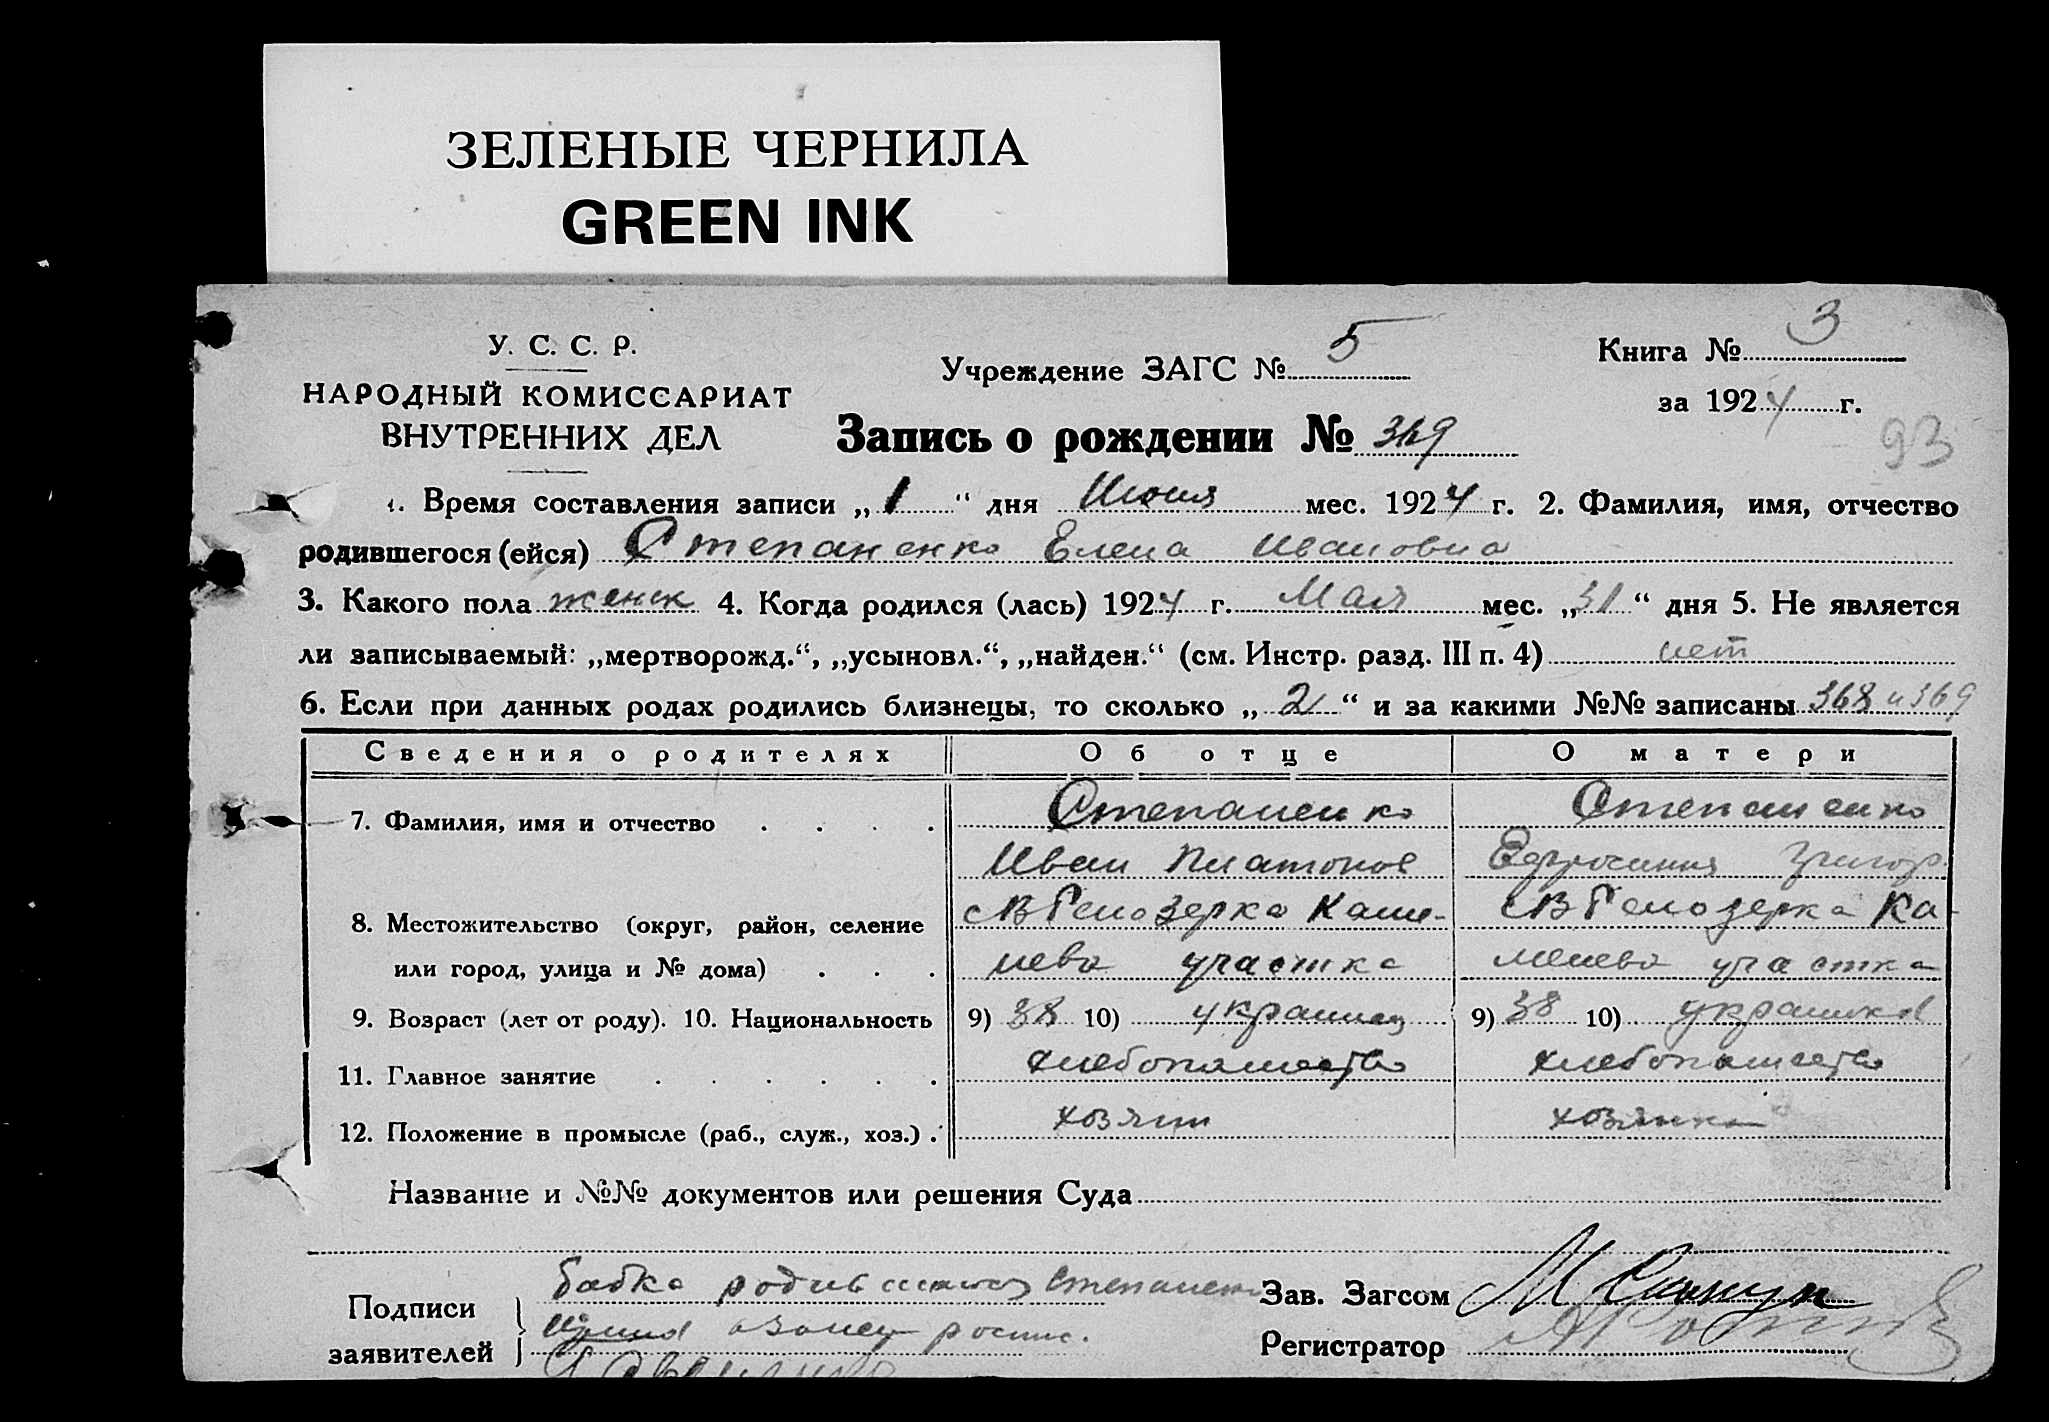 ЗЕЛЕНЫЕ ЧЕРНИЛА
GREEN INK
У. С. С. Р.
НАРОДНЫЙ КОМИССАРИАТ
ВНУТРЕННИХ ДЕЛ
Учреждение ЗАГС № 5
Книга № 3
за 1924 г.
93
Запись о рождении № 369
1. Время составления записи „ 1 “ дня Июня мес. 1924 г. 2. Фамилия, имя, отчество
родившегося (ейся) Степаненко Елена Ивановна
3. Какого пола женск 4. Когда родился (лась) 1924 г. Мая мес. „31“ дня 5. Не является
ли записываемый: „мертворожд.“, „усыновл.“, „найден.“ (см. Инстр. разд. III п. 4) нет
6. Если при данных родах родились близнецы, то сколько „ 2 “ и за какими №№ записаны 368 и 369
Сведения о родителях Об отце О матери
7. Фамилия, имя и отчество . . . . Степаненко Степаненко
Иван Платонов Ефросиния Григор.
8. Местожительство (округ, район, селение с В Белозерка Каме- с В Белозерка Ка-
или город, улица и № дома) . . . нева участка менева участка
9. Возраст (лет от роду). 10. Национальность 9) 38 10) украинец 9) 38 10) украинка
11. Главное занятие . . . . . . хлебопашество хлебопашество
12. Положение в промысле (раб., служ., хоз.) . хозяин хозяйка
Название и №№ документов или решения Суда
Подписи бабка родившейся Степаненко Зав. Загсом
заявителей Регистратор